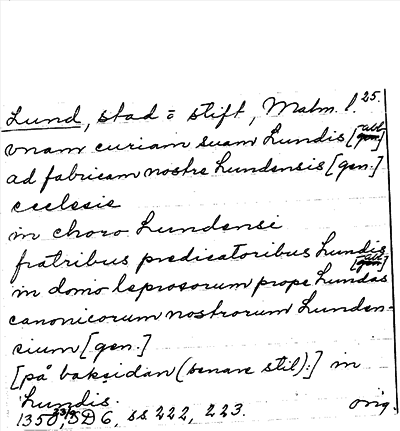 Lund, stad = stift, Malm. l. 25.
vnam curiam suam Lundis [abl.]
ad fabricam nostre Lundensis [gen.]
ecclesie
in choro Lundensi
fratribus predicatoribus Lundis [abl.]
in domo leprosorum prope Lundas
canonicorum nostrorum Lunden-
cium [gen.]
[på baksidan (senare stil):] in
Lundis.
1350, SD 6, ss. 222, 223. orig.